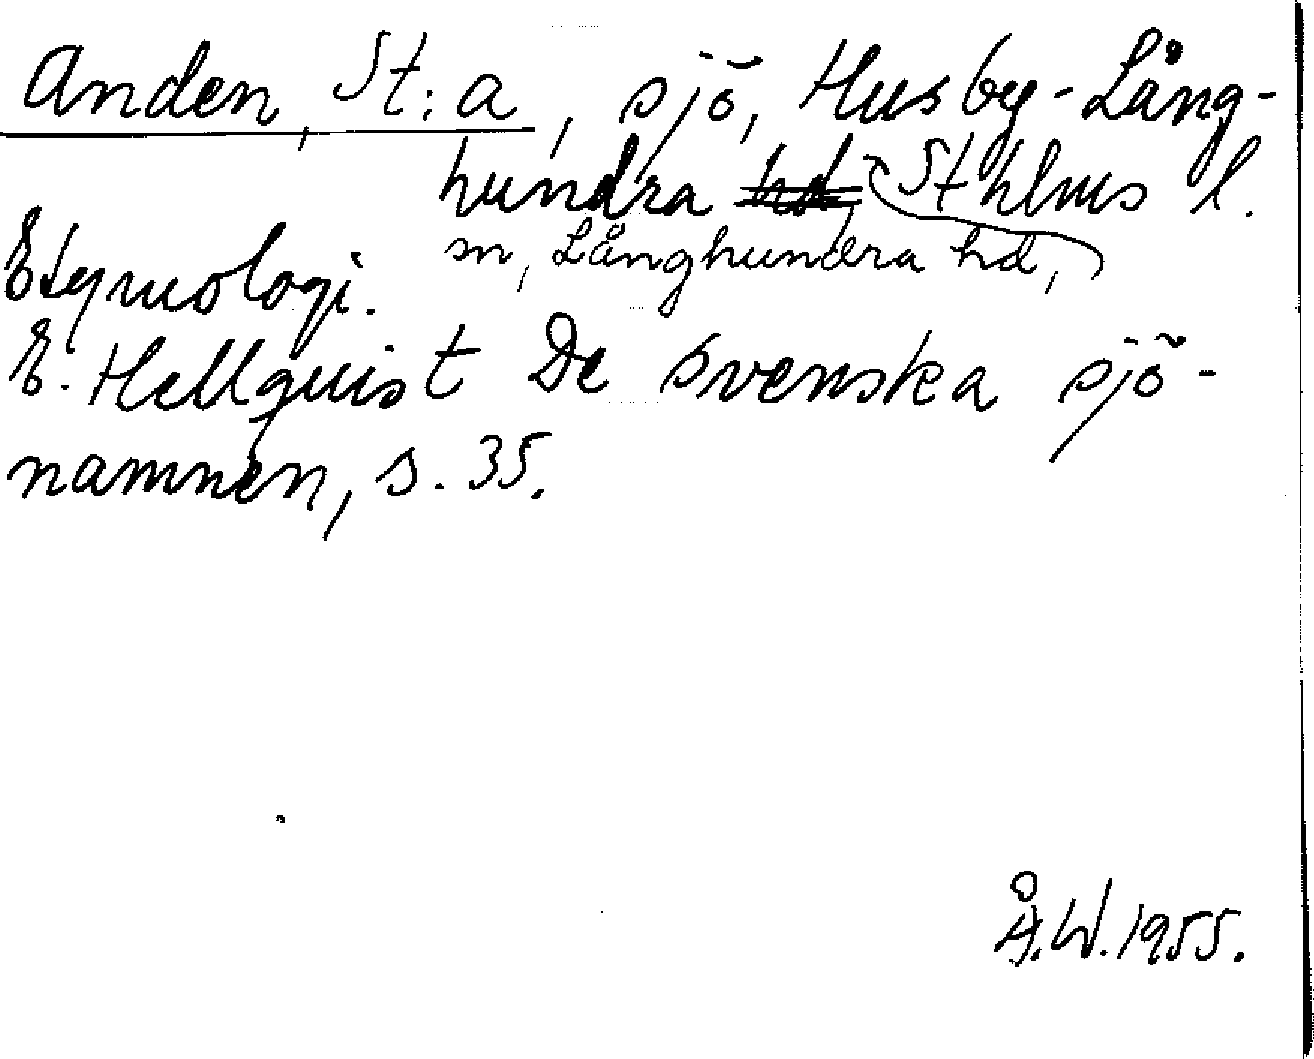 Anden, St:a, sjö, Husby-Lång-
hundra hd Sthlms l.
sn, Långhundra hd,
Etymologi.
E. Hellquist De svenska sjö-
namnen, s. 35.
Å.W. 1955.